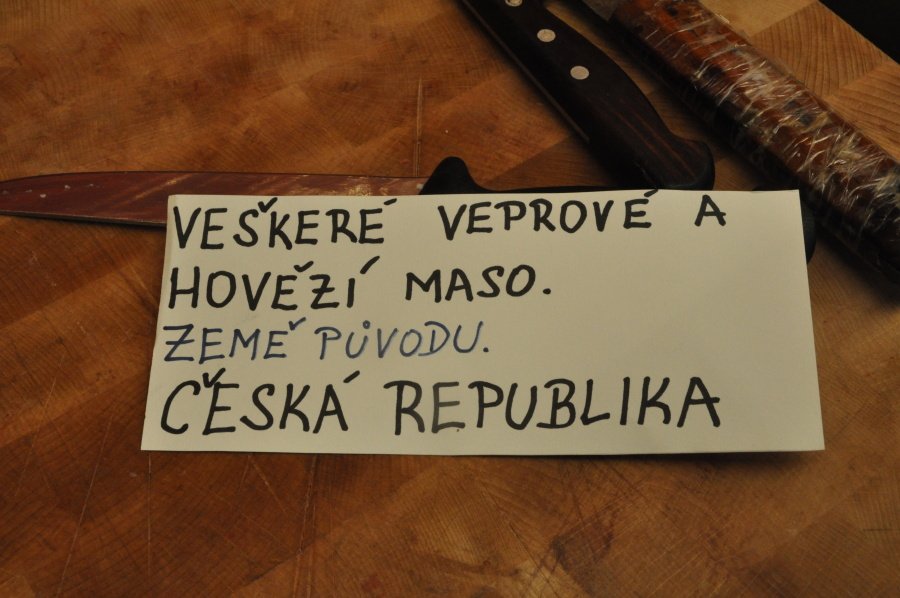 VEŠKERÉ VEPROVÉ A
HOVĚZÍ MASO.
ZEMĚ PŮVODU.
ČESKÁ REPUBLIKA